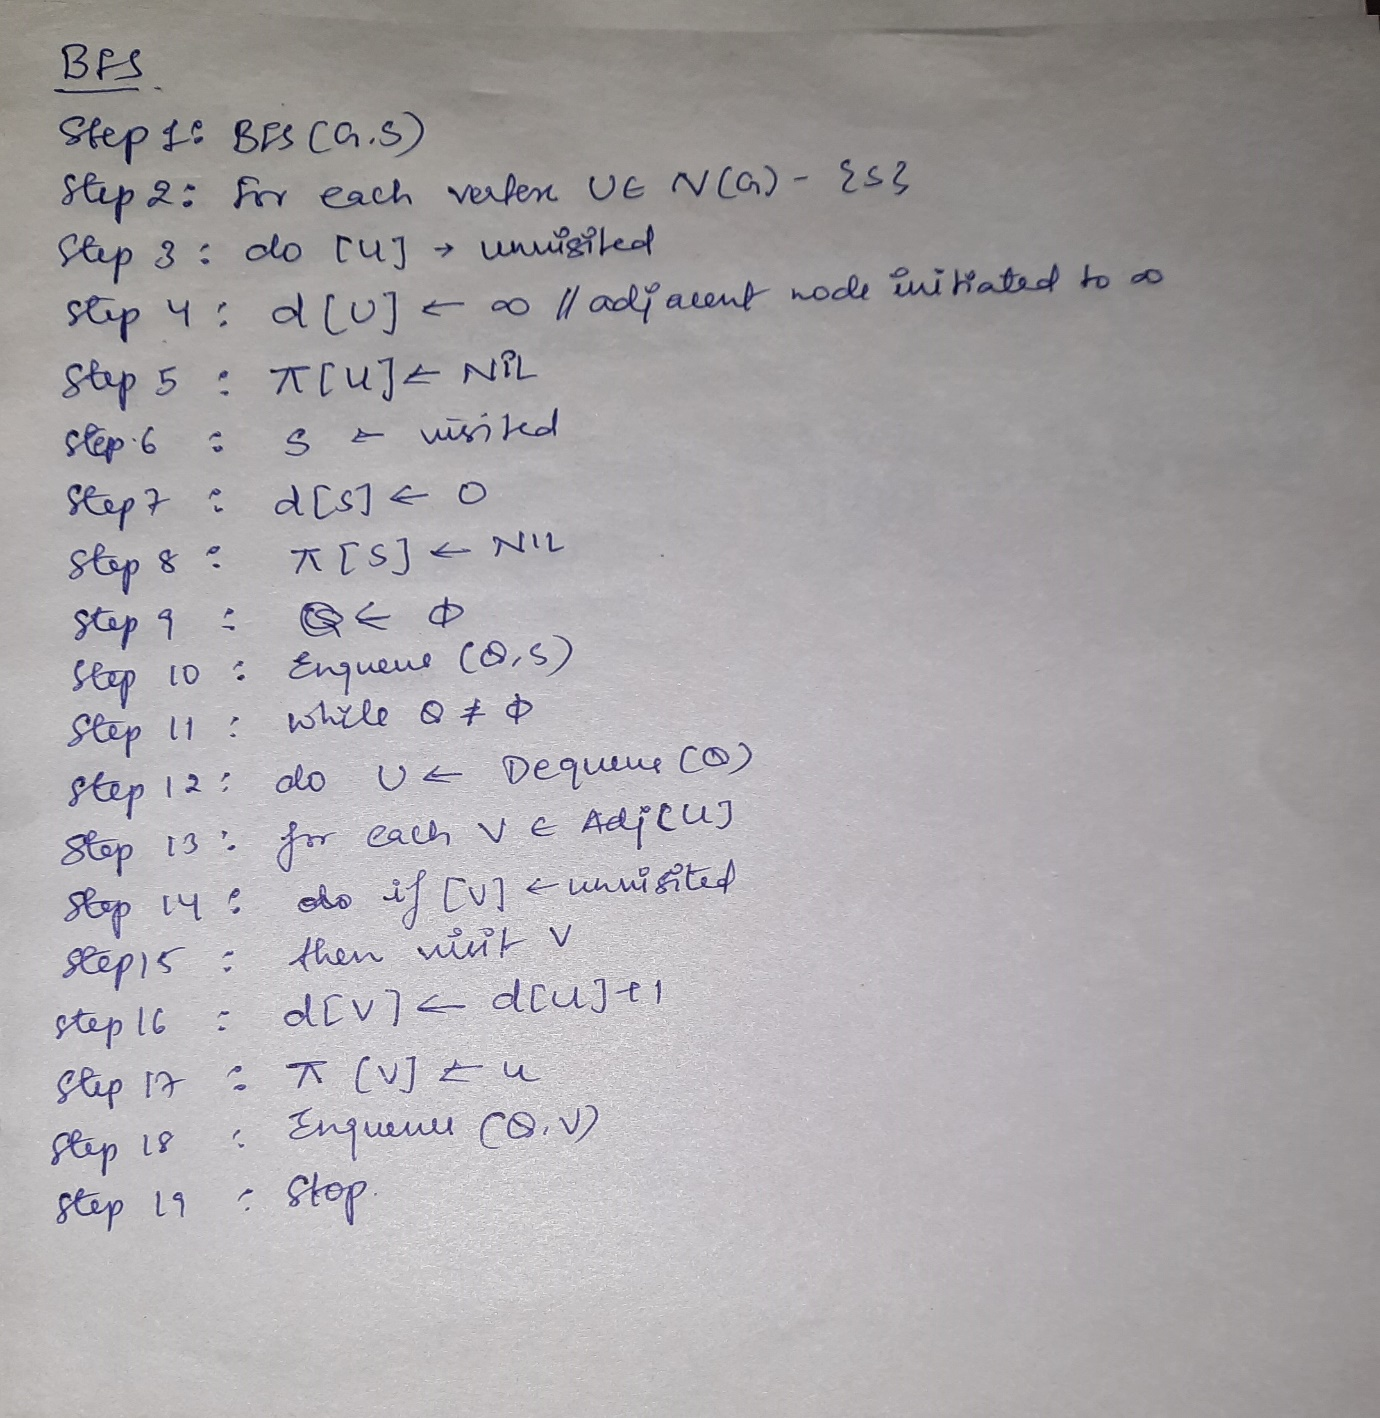 BFS
Step 1: BFS (G,S)
Step 2: For each vertex U ∈ V(G) - {S}
Step 3: do [U] → unvisited
Step 4: d[U] ← ∞ // adjacent node initiated to ∞
Step 5: π[U] ← NIL
Step 6: S ← visited
Step 7: d[S] ← 0
Step 8: π[S] ← NIL
Step 9: Q ← Φ
Step 10: Enqueue (Q,S)
Step 11: While Q ≠ Φ
Step 12: do U ← Dequeue (Q)
Step 13: for each V ∈ Adj[U]
Step 14: do if [V] ← unvisited
Step 15: then visit V
Step 16: d[V] ← d[U]+1
Step 17: π [V] ← u
Step 18: Enqueue (Q,V)
Step 19: Stop.